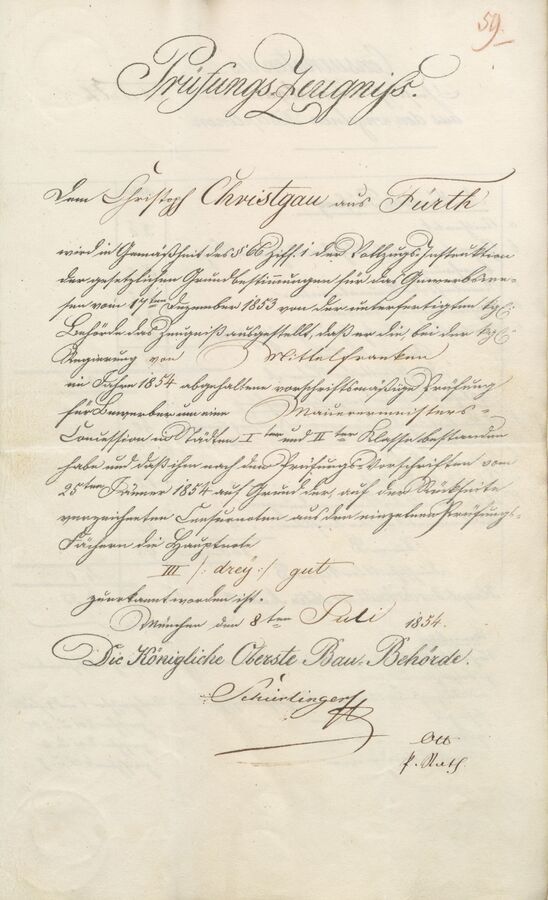 59.
Prüfungs-Zeugniß.
Dem Christoph Christgau aus Fürth
wird in Gemäßheit des § 66 Ziff. 1 der Vollzugs-Instruktion
der gesetzlichen Grundbestimmungen für das Gewerbswe-
sen vom 17ten Dezember 1853 von der unterfertigten kgl.
Behörde das Zeugniß ausgestellt, daß er die, bei der kgl.
Regierung von Mittelfranken
im Jahre 1854 abgehaltene vorschriftsmäßige Prüfung
für Bewerber um eine Mauerermeisters-
Concession in Städten Iter und IIter Klasse bestanden
habe und daß ihm nach den Prüfungs-Vorschriften vom
25ten Jäner 1854 auf Grund der, auf der Rückseite
verzeichneten Censurnoten aus den einzelnen Prüfungs-
Fächern die Hauptnote
III /: drey :/ gut
zuerkannt worden ist.
München den 8ten Juli 1854.
Die Königliche Oberste Bau-Behörde.
Schierlinger
Ott